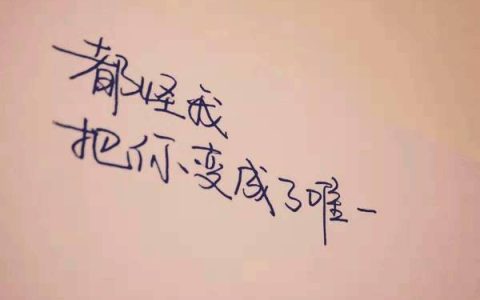 都怪我
把你变成了唯一